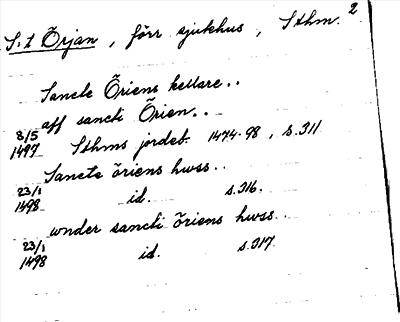 2
S:t Örjan, förr sjukhus, Sthm.
Sancte Öriens kellare..
aff sancti Örien..
8/5 1497 Sthms jordeb. 1474-98, s.311
Sancte öriens hwss..
23/1 1498 id. s.316.
wnder sancti öriens hwss..
23/1 1498 id. s.317